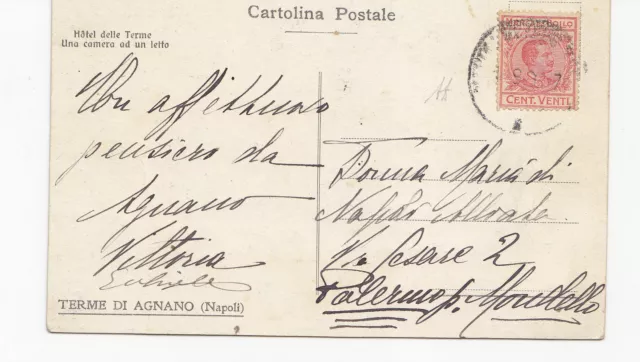 Cartolina Postale
Hôtel delle Terme
Una camera ad un letto
Un affettuoso
pensiero da
Agnano
Vittoria
TERME DI AGNANO (Napoli)
CENT. VENTI
Donna Maria di
Napoli
Via Cesare 2
Palermo p. Mondello